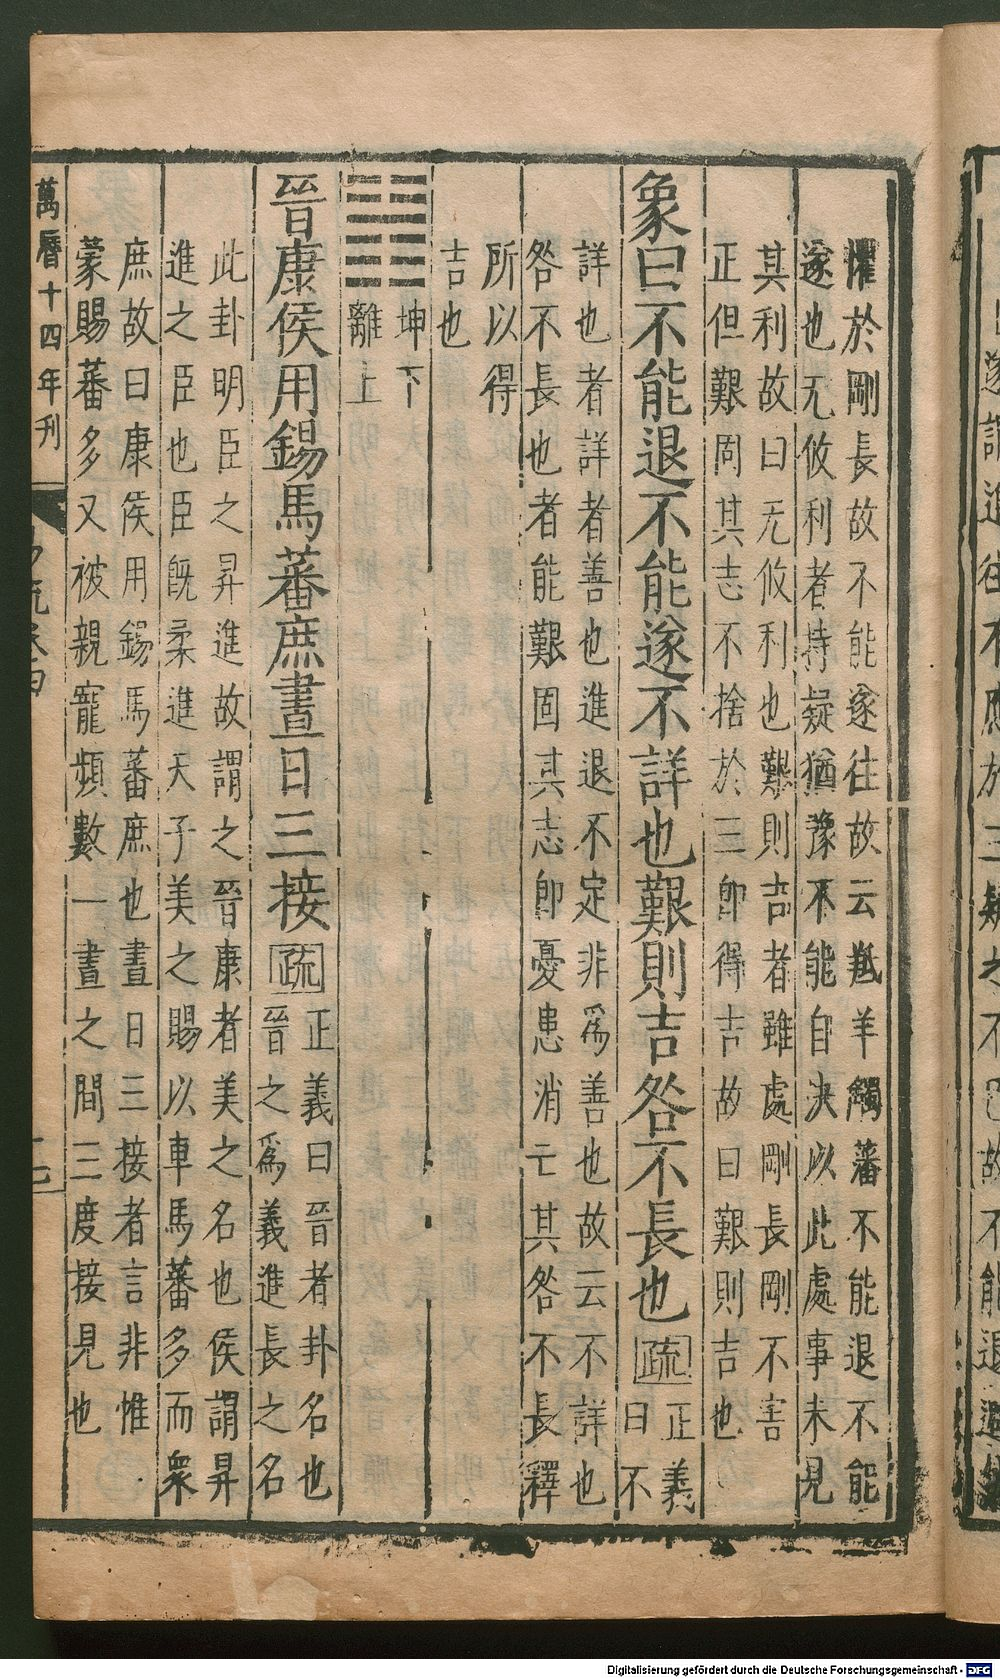 懼於剛長故不能遂往故云羝羊觸藩不能退不能
遂也无攸利者持疑猶豫不能自決以此處事未見
其利故曰无攸利也艱則吉者雖處剛長剛不害
正但艱固其志不捨於三卽得吉故曰艱則吉也
象曰不能退不能遂不詳也艱則吉咎不長也疏正義
曰不
詳也者詳者善也進退不定非爲善也故云不詳也
咎不長也者能艱固其志卽憂患消亡其咎不長釋
所以得
吉也
坤下
離上
晉康侯用錫馬蕃庶晝日三接疏正義曰晉者卦名也
晉之爲義進長之名
此卦明臣之昇進故謂之晉康者美之名也侯謂昇
進之臣也臣旣柔進天子美之賜以車馬蕃多而衆
庶故曰康侯用錫馬蕃庶也晝日三接者言非惟
蒙賜蕃多又被親寵頻數一晝之間三度接見也
萬曆十四年刊
Digitalisierung gefördert durch die Deutsche Forschungsgemeinschaft - DFG